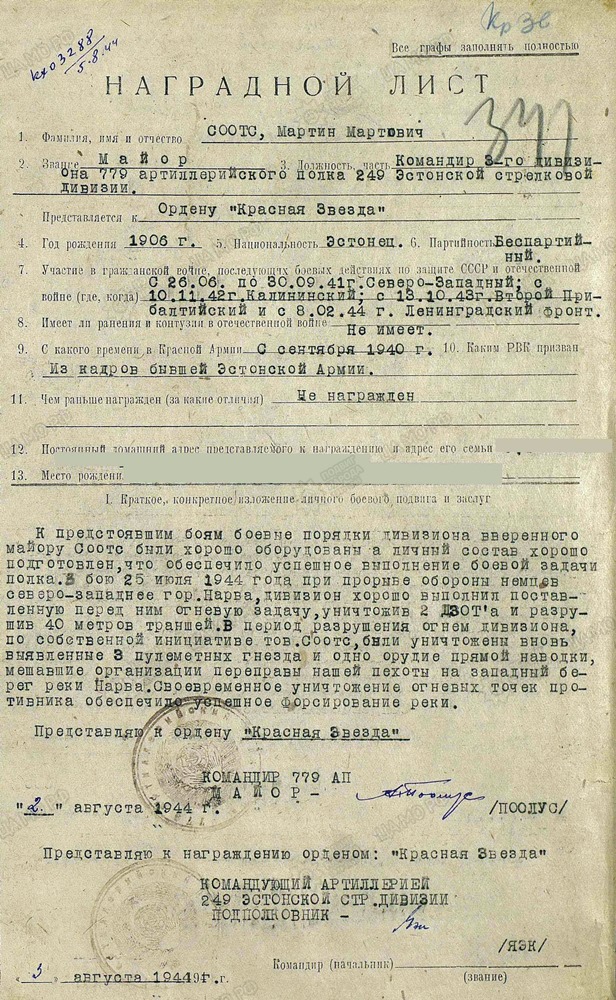 кхо3288
5.8.44
Кр Зв
Все графы заполнять полностью
НАГРАДНОЙ ЛИСТ
1. Фамилия, имя и отчество СООТС, Мартин Мартович
2. Звание Майор 3. Должность, часть Командир 3-го дивизи-
она 779 артиллерийского полка 249 Эстонской стрелковой
дивизии.
Представляется к Ордену "Красная Звезда"
4. Год рождения 1906 г. 5. Национальность Эстонец. 6. Партийность Беспартий-
ный.
7. Участие в гражданской войне, последующих боевых действиях по защите СССР и отечественной
С 26.06. по 30.09.41г.Северо-Западный; с
войне (где, когда) 10.11.42г.Калининский; с 13.10.43г.Второй При-
балтийский и с 8.02.44 г. Ленинградский фронт.
8. Имеет ли ранения и контузии в отечественной войне Не имеет.
9. С какого времени в Красной Армии С сентября 1940 г. 10. Каким РВК призван
Из кадров бывшей Эстонской Армии.
11. Чем раньше награжден (за какие отличия) Не награжден
12. Постоянный домашний адрес представляемого к награждению и адрес его семьи
13. Место рождени
I. Краткое, конкретное изложение личного боевого подвига и заслуг
К предстоявшим боям боевые порядки дивизиона вверенного
майору Соотс были хорошо оборудованы а личный состав хорошо
подготовлен,что обеспечило успешное выполнение боевой задачи
полка.В бою 25 июля 1944 года при прорыве обороны немцев
северо-западнее гор.Нарва,дивизион хорошо выполнил постав-
ленную перед ним огневую задачу,уничтожив 2 ДЗОТ'а и разру-
шив 40 метров траншей.В период разрушения огнем дивизиона,
по собственной инициативе тов.Соотс,были уничтожены вновь
выявленные 3 пулеметных гнезда и одно орудие прямой наводки,
мешавшие организации переправы нашей пехоты на западный бе-
рег реки Нарва.Своевременное уничтожение огневых точек про-
тивника обеспечило успешное форсирование реки.
Представляю к ордену "Красная Звезда"
КОМАНДИР 779 АП
МАЙОР -
"2" августа 1944 г. /ПООЛУС/
Представляю к награждению орденом: "Красная Звезда"
КОМАНДУЮЩИЙ АРТИЛЛЕРИЕЙ
249 ЭСТОНСКОЙ СТР.ДИВИЗИИ
ПОДПОЛКОВНИК -
/ЯЭК/
Командир (начальник)
"3" августа 1944 194 г. (звание)